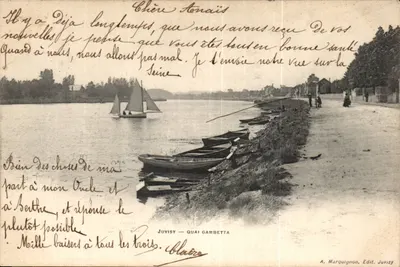 Chère Anaïs
Il y a Déjà longtemps, que nous avons reçu De vos
nouvelles je pense que vous êtes tous en bonne santé
Quand à nous, nous allons pas mal. Je t'envoie notre vue sur la
Seine
Bien des choses de ma
part à mon Oncle et
à Berthe, et réponse le
plutôt possible.
Mille baisers à tous les trois.
Claire
JUVISY — QUAI GAMBETTA
A. Marquignon, Edit. Juvisy